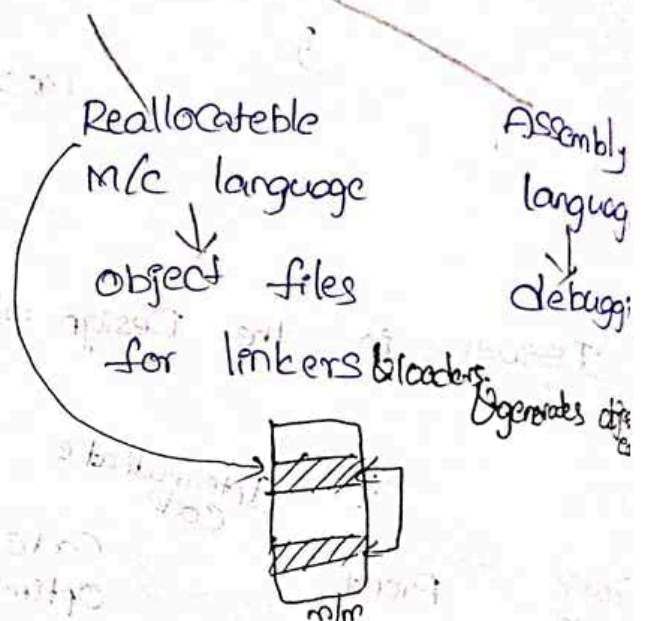 Reallocateble
M/c language
object files
for linkers & loaders.
m/m
Assembly
languag
debuggi
& generates